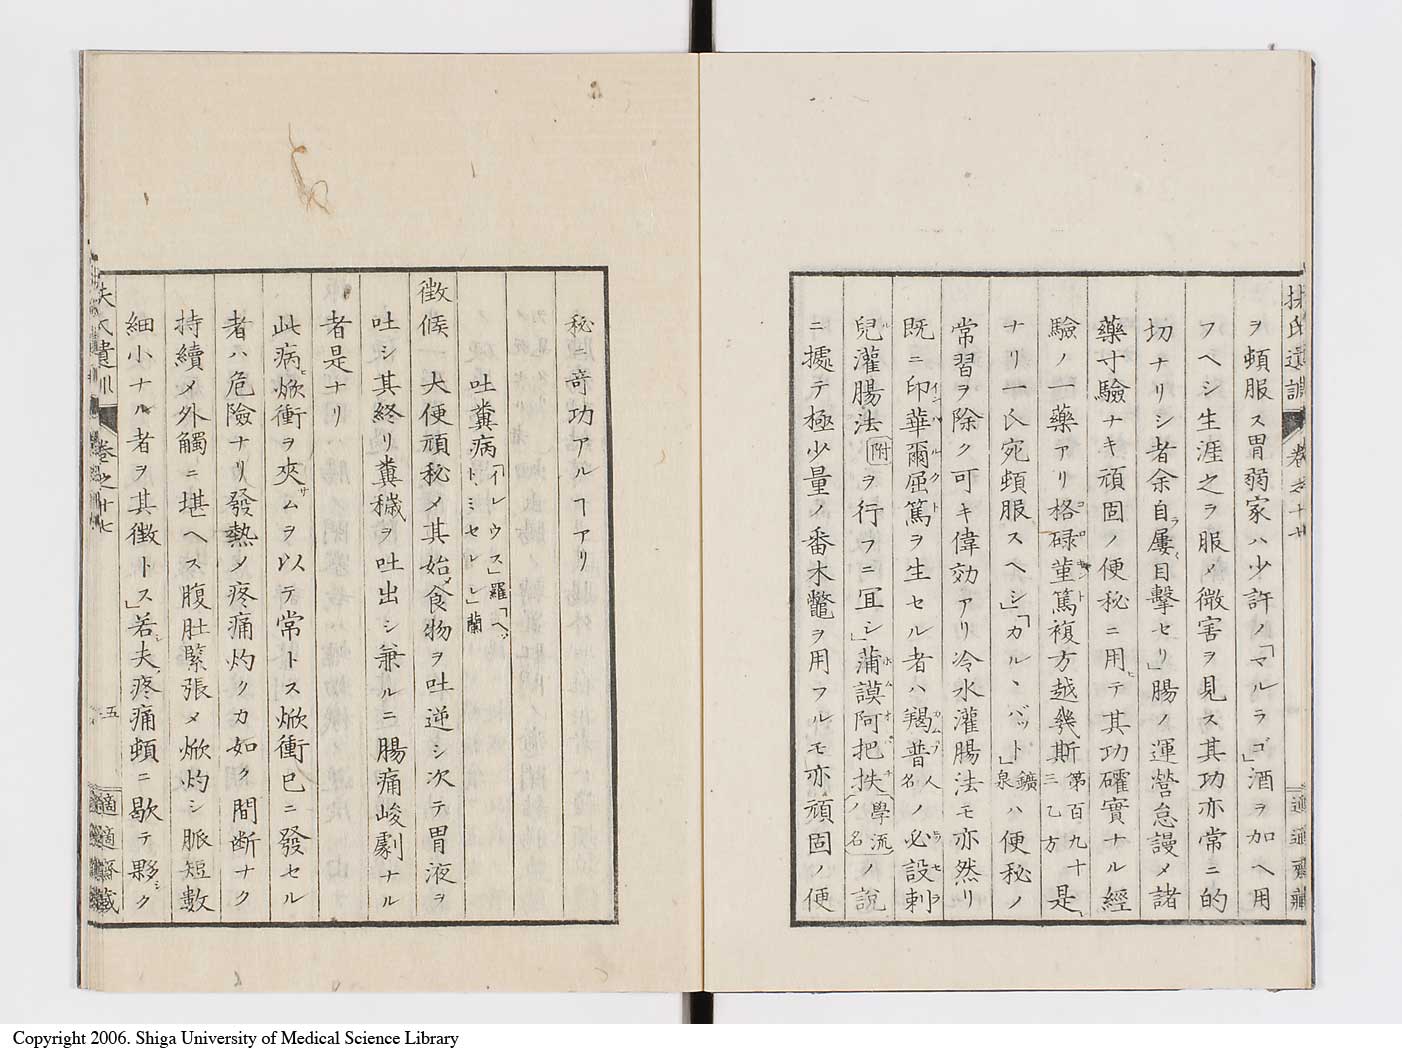 扶氏遺訓 卷之十七 適適齋藏
ヲ頓服ス胃弱家ハ少許ノ「マルラゴ」酒ヲ加ヘ用
フヘシ生涯之ヲ服メ微害ヲ見ス其功亦常ニ的
切ナリシ者余自ラ屢目擊セリ」腸ノ運營怠謾メ諸
藥寸驗ナキ頑固ノ便秘ニ用ヒテ其功礭實ナル經
驗ノ一藥アリ格碌菫篤複方越幾斯第百九十三乙方是
ナリ一氏宛頓服スヘシ」「カルヽバット」鑛泉ハ便秘ノ
常習ヲ除ク可キ偉効アリ冷水灌腸法モ亦然リ
既ニ印華爾屈篤ヲ生セル者ハ羯普人名ノ必設剌
兒灌腸法附ヲ行フニ冝シ」蒲謨阿把挟學流ノ名ノ說
ニ據テ極少量ノ番木鼈ヲ用フルモ亦頑固ノ便
秘ニ竒功アルヿアリ
吐糞病「イレウス」羅「ヘットミセレレ」蘭
徴候 大便頑秘メ其始メ食物ヲ吐逆シ次テ胃液ヲ
吐シ其終リ糞穢ヲ吐出シ兼ルニ腸痛峻劇ナル
者是ナリ
此病焮衝ヲ夾サムヲ以テ常トス焮衝已ニ發セル
者ハ危險ナリ發熱メ疼痛灼クカ如ク間断ナク
持續メ外觸ニ堪ヘス腹肚緊張メ焮灼シ脈短數
細小ナル者ヲ其徴トス」若夫疼痛頓ニ歇テ夥シク
扶氏遺訓 卷之十七 五 適適齋藏
Copyright 2006. Shiga University of Medical Science Library